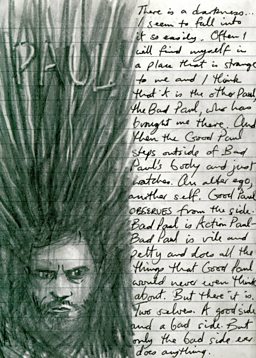 PAUL
There is a darkness...
I seem to fall into
it so easily. Often I
will find myself in
a place that is strange
to me and I think
that it is the other Paul,
the Bad Paul, who has
brought me there. And
then the Good Paul
steps outside of Bad
Paul's body and just
watches. An alter ego,
another self. Good Paul
OBSERVES from the side.
Bad Paul is Action Paul.
Bad Paul is vile and
petty and does all the
things that Good Paul
would never even think
about. But there it is.
Two selves. A good side
and a bad side. But
only the bad side ever
does anything.